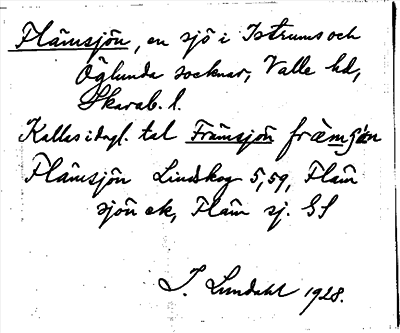 Flämsjön, en sjö i Istrums och
Öglunda socknar, Valle hd,
Skarab. l.
Kallas i dagl. tal Främsjön främsjøn
Flämsjön Lindskog 5,59, Fläm
sjön ek, Fläm sj. GS
I. Lundahl 1928.